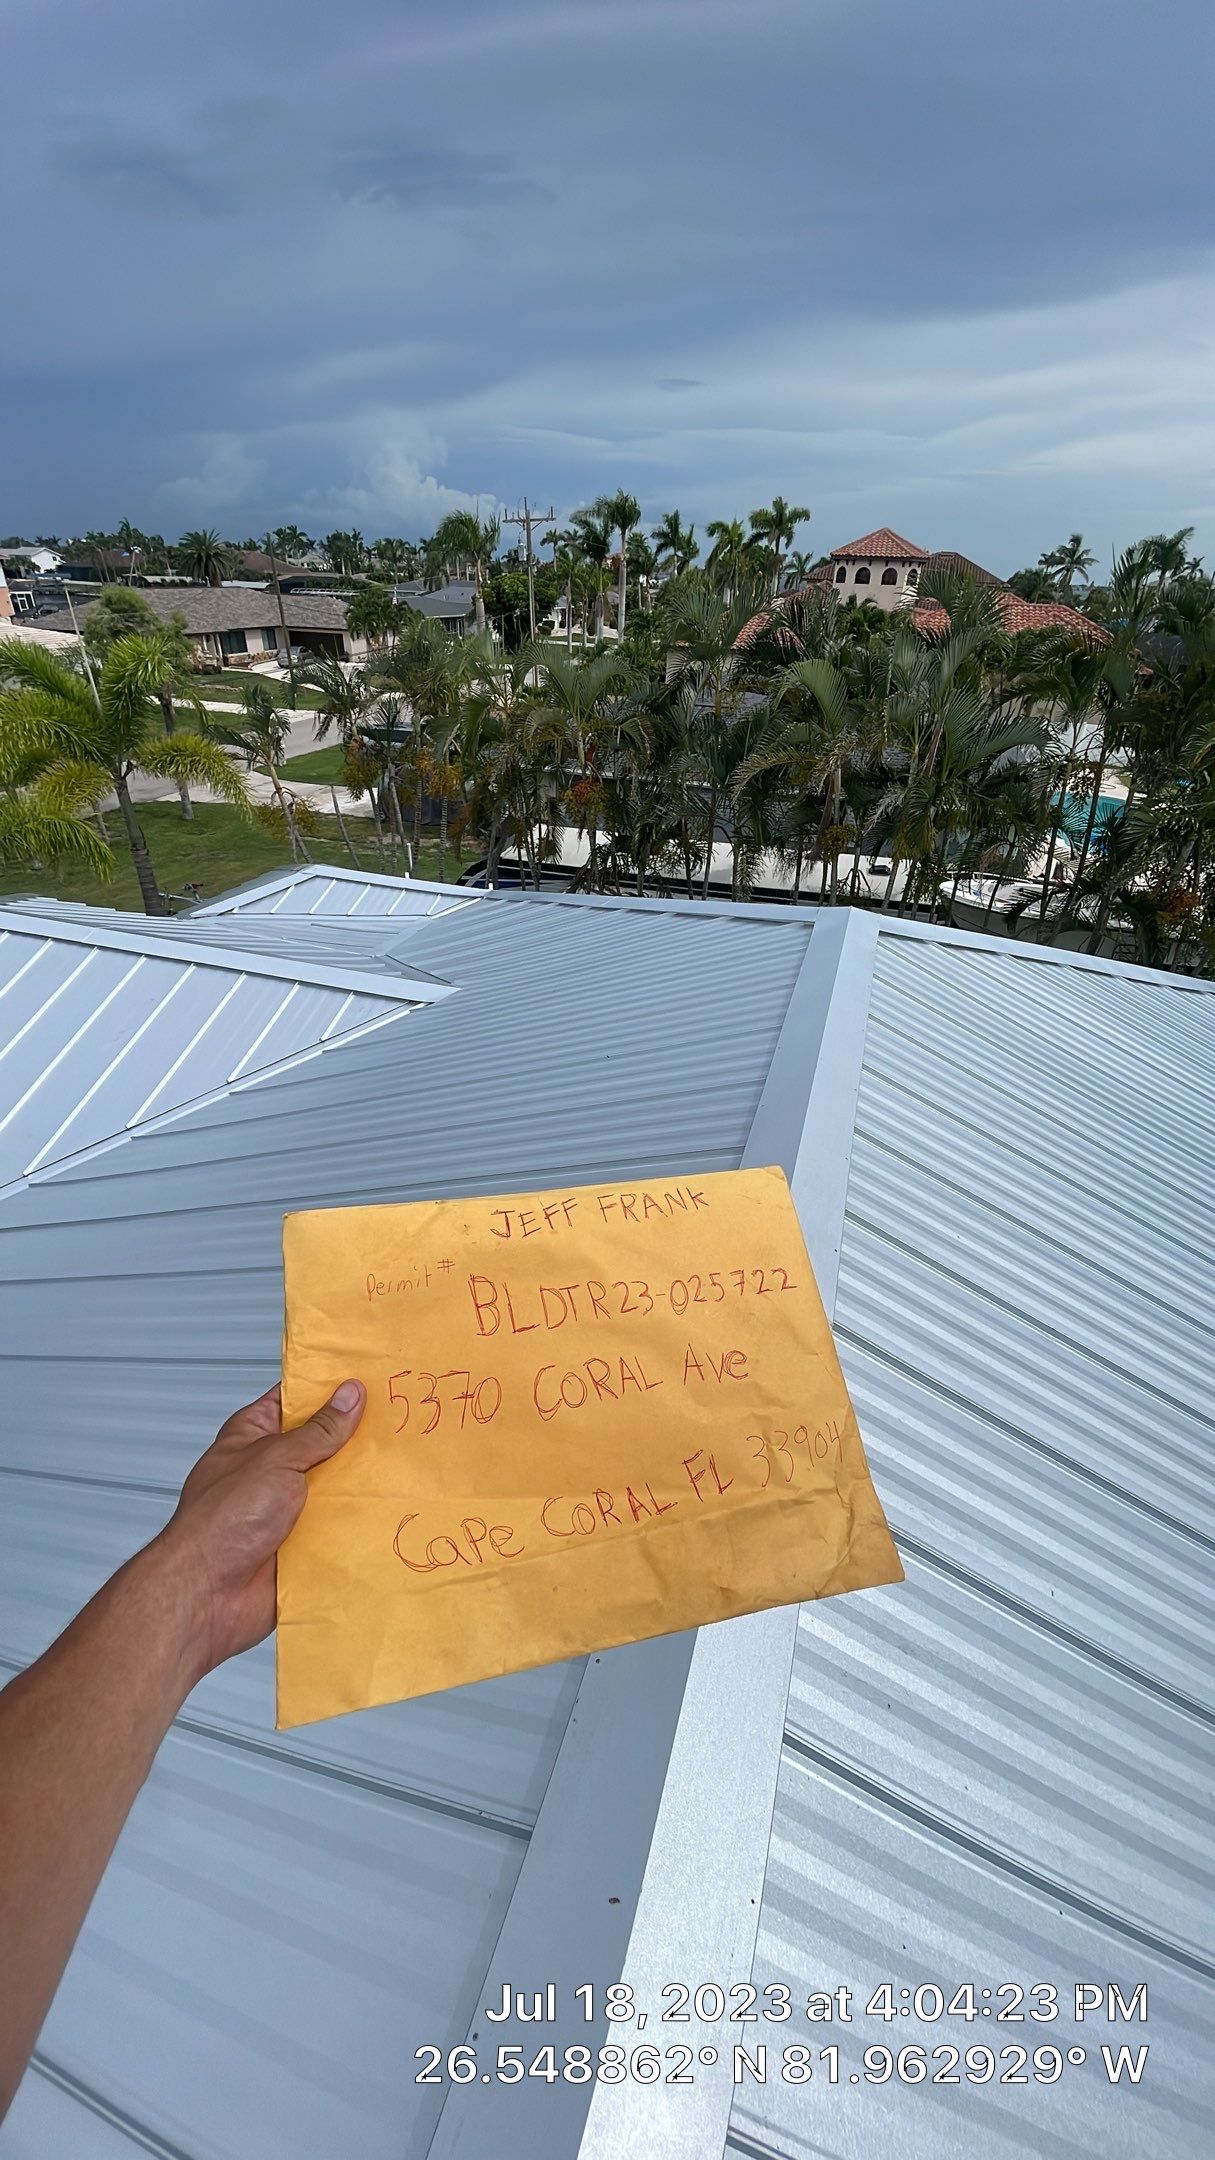 JEFF FRANK
Permit # BLDTR23-025722
5370 CORAL Ave
Cape CORAL FL 33904
Jul 18, 2023 at 4:04:23 PM
26.548862° N 81.962929° W